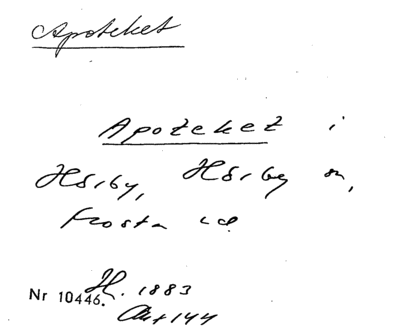 Apoteket
Apoteket i
Hörby, Hörby sn,
Frosta hd.
Nr 10446. H. 1883
Akt 144